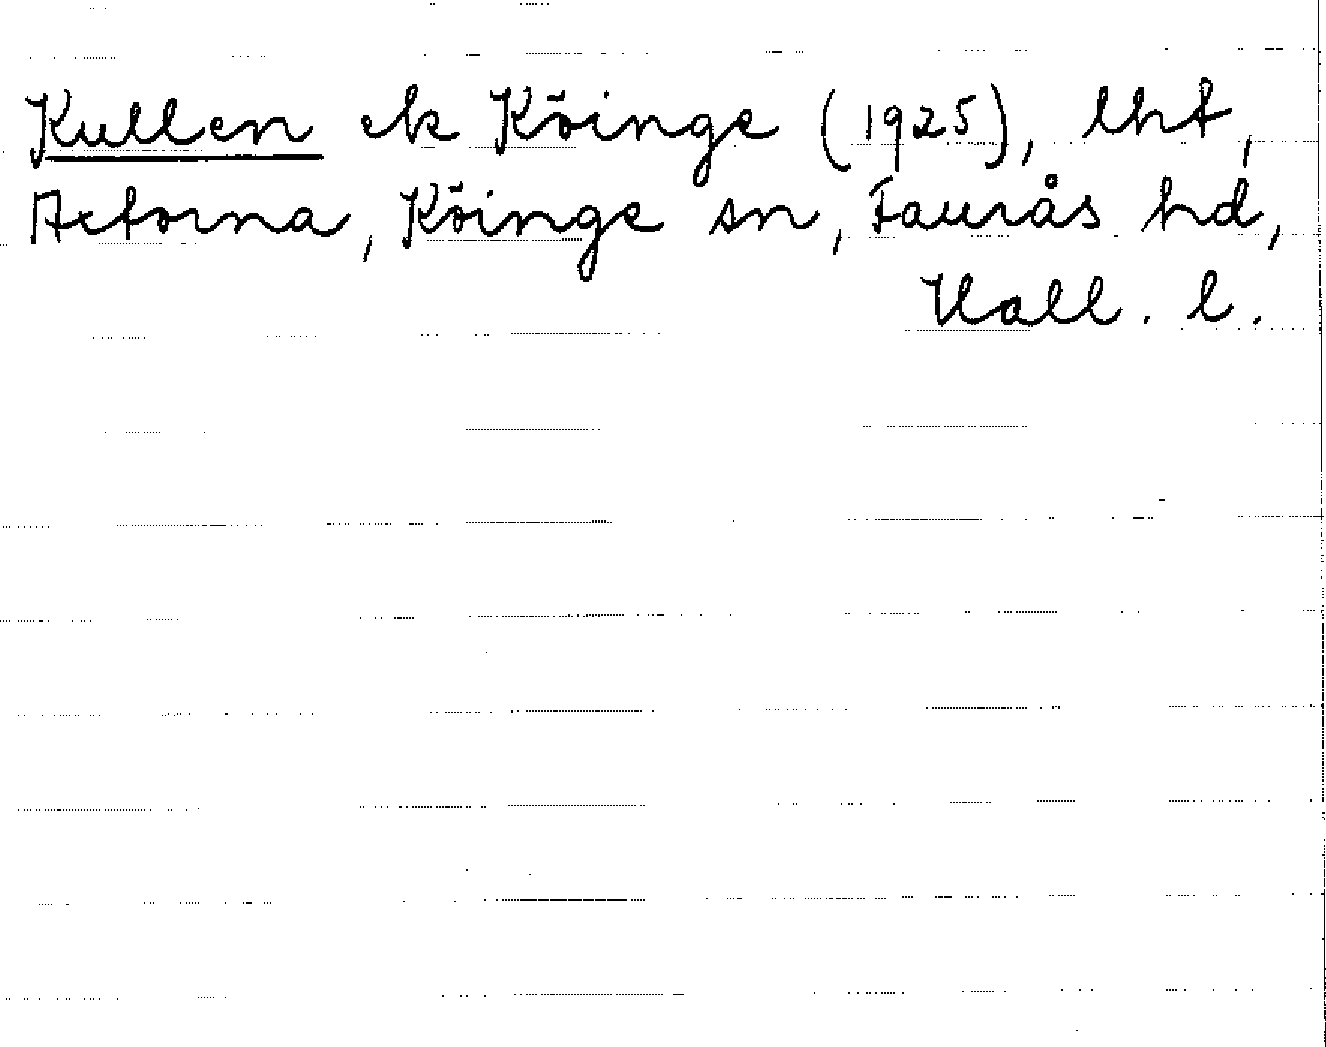 Kullen ek Köinge (1925), lht,
Aetorna, Köinge sn, Faurås hd,
Hall. l.